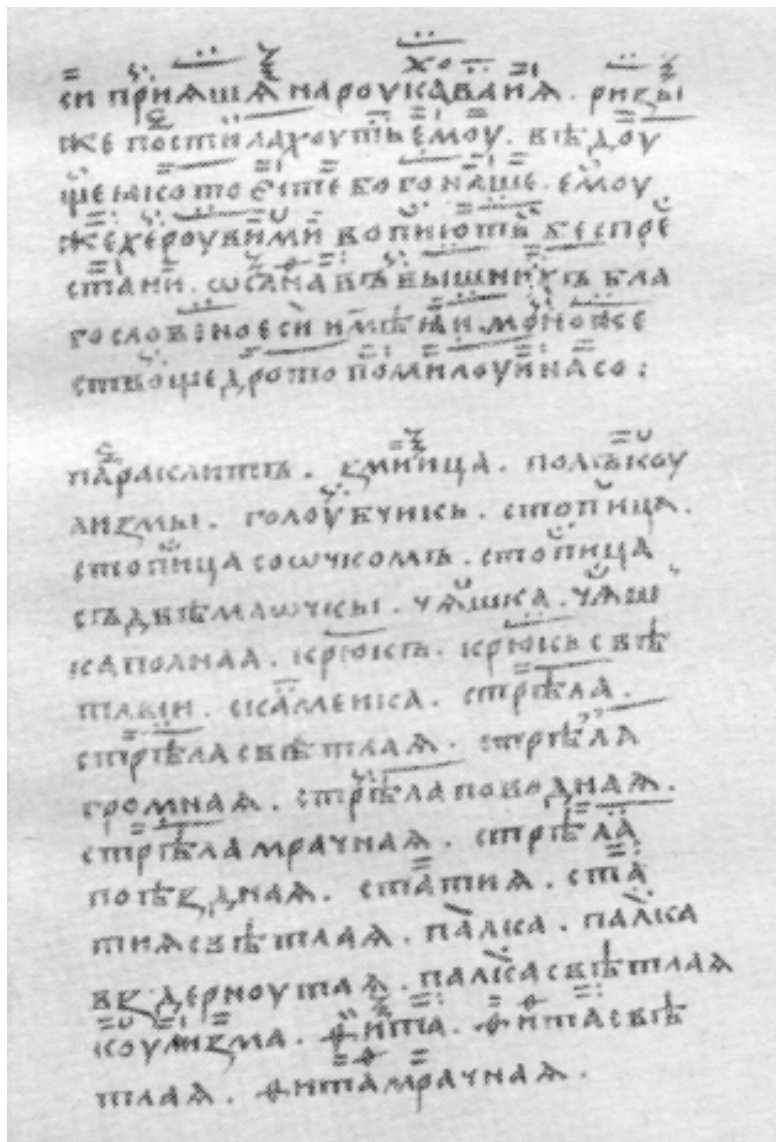 си приѧшѧ на роукаваиѧ . ризы
же постилахоуть емоу . вѣдоу
ще ꙗко то есте бого наше . емоу
же хероувими вопиють беспре
стани . ѡсана въ вышнихъ бла
гословено еси имѣꙗи . моноже
ство щедрото помилоуи насо :
параклитъ . ꙁмиица . полъкоу
лиꙁмы . голоубчикь . стопица .
стопица со ѡчкомъ . стопица
съ двѣма ѡчкы . чѧшка . чѧш
ка полнаа . крюкъ . крюкь свѣ
тлыи . скамеика . стрѣла .
стрѣла свѣтлаѧ . стрѣла
громнаѧ . стрѣла поводнаѧ .
стрѣла мрачнаѧ . стрѣла
поѣꙁднаѧ . статиѧ . ста
тиѧ свѣтлаѧ . палка . палка
въꙁдерноутаѧ . палка свѣтлаѧ
коулиꙁма . фита . фита свѣ
тлаѧ . фита мрачнаѧ .